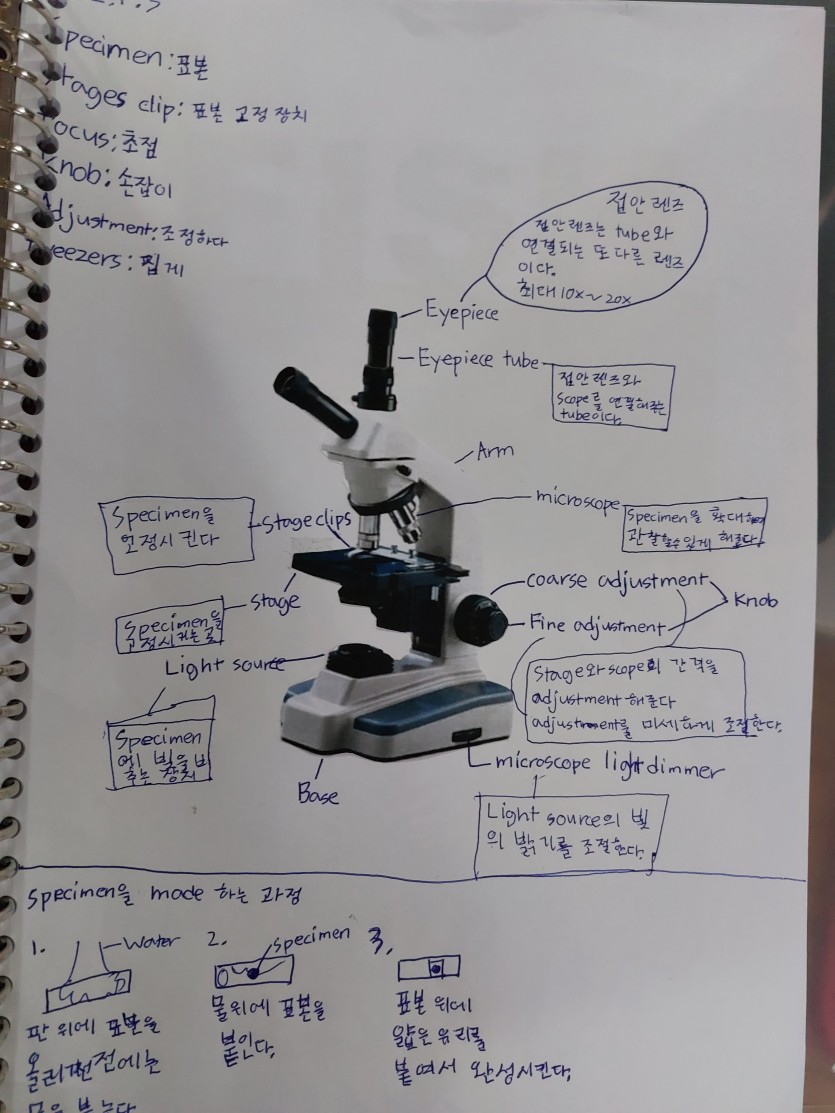 Specimen : 표본
Stages clip : 표본 고정 장치
Focus : 초점
Knob : 손잡이
Adjustment : 조정하다
Tweezers : 핍게
접안 렌즈
접안 렌즈는 tube와
연결되는 또 다른 렌즈
이다.
최대 10x~20x
Eyepiece
Eyepiece tube
접안 렌즈와
scope를 연결해주는
tube이다.
Arm
microscope
Specimen을 확대하여
관찰할수있게 해준다.
Stage clips
Specimen을
고정시 킨다
coarse adjustment
Knob
Fine adjustment
Stage
Specimen을
고정시키는 곳
Stage와 scope의 간격을
adjustment 해준다
adjustment를 미세하게 조절한다.
Light source
Specimen
에 빛을 비
추는 장치
microscope light dimmer
Base
Light source의 빛
의 밝기를 조절한다.
Specimen을 made 하는 과정
1.
Water
판 위에 표본을
올리기전에는
물을 붓는다
2.
specimen
물위에 표본을
붙인다.
3.
표본 위에
얇은 유리를
붙여서 완성시킨다.